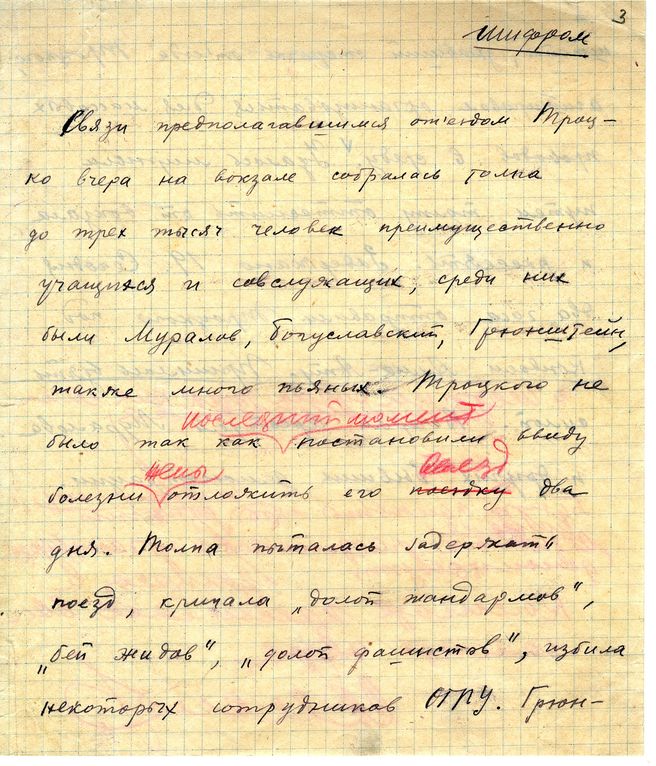 3
шифром
Связи предполагавшимся от'ездом Троц-
ко вчера на вокзале собралась толпа
до трех тысяч человек преимущественно
учащихся и совслужащих, среди них
были Муралов, Богуславский, Грюнштейн,
также много пьяных. Троцкого не
последний момент
было так как постановили ввиду
жены отъезд
болезни отложить его поездку два
дня. Толпа пыталась задержать
поезд, кричала „долой жандармов",
„бей жидов", „долой фашистов", избила
некоторых сотрудников ОГПУ. Грюн-